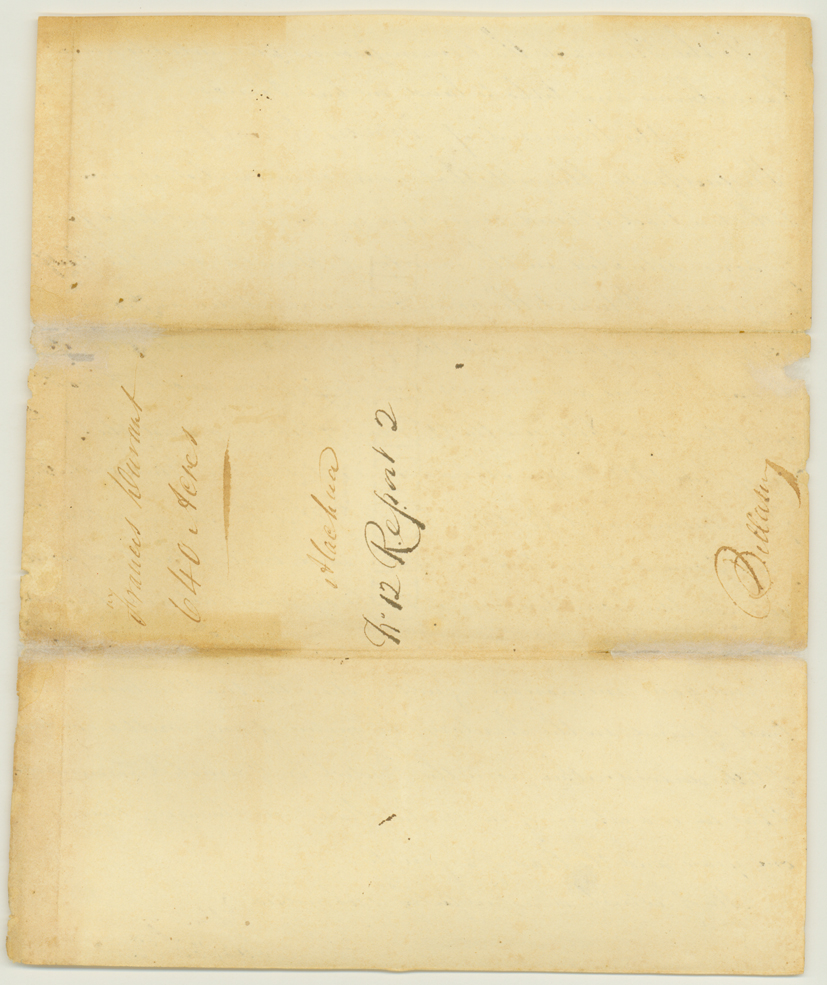 Francis Durant
640 Acres
Alachua
No. 12 Report 2
Bellamy